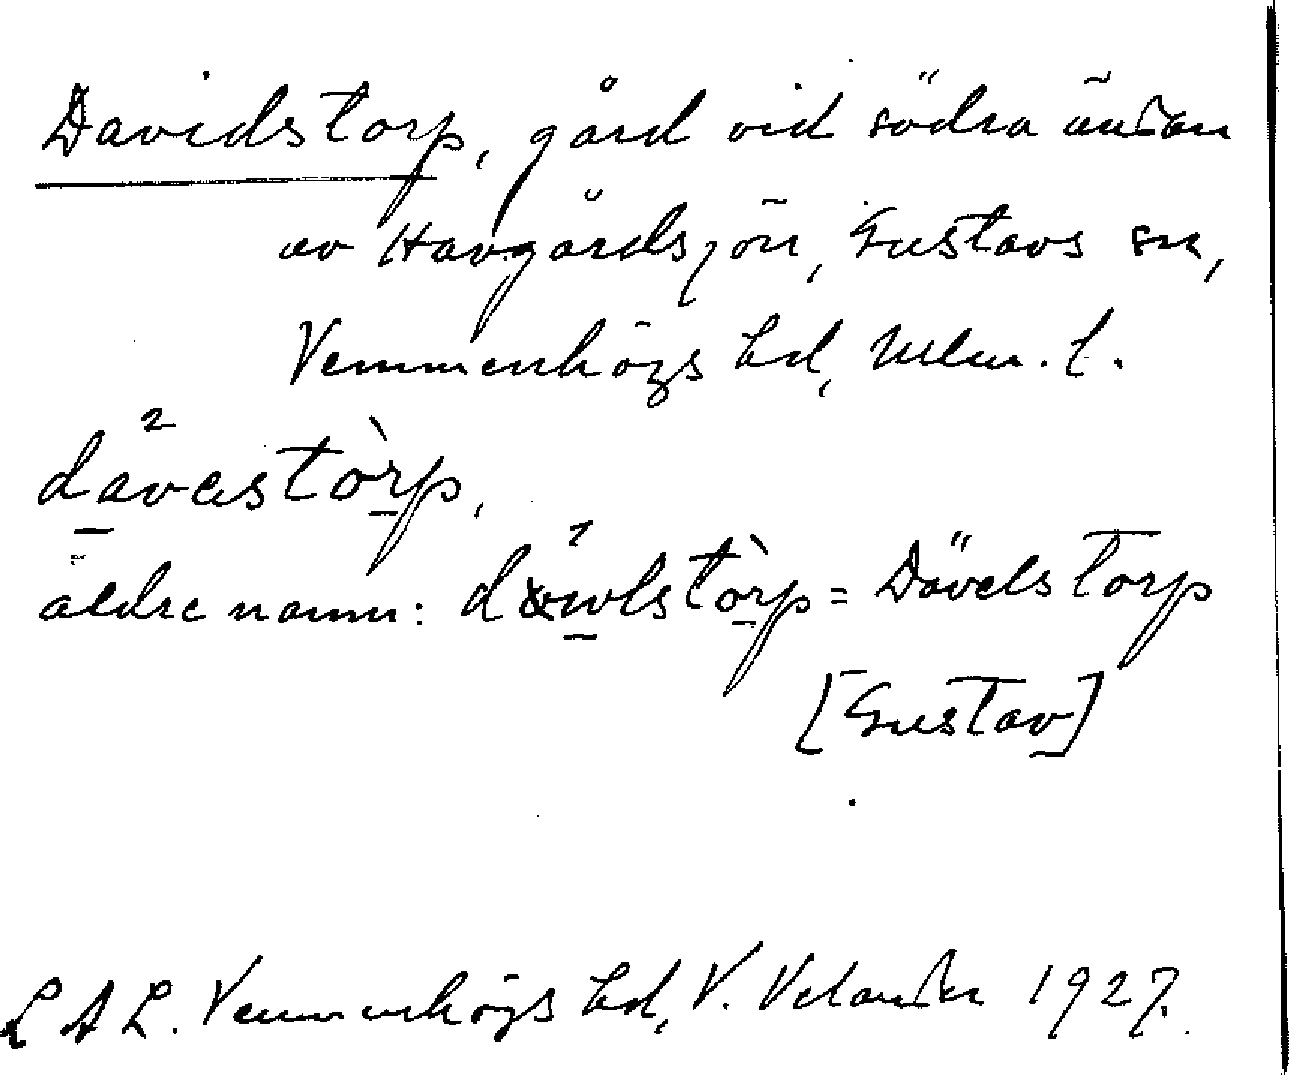 Davidstorp, gård vid södra ändan
av Havgårdsjön, Gustavs sn,
Vemmenhögs hd, Mlm. l.
davastòrp,
äldre namn: dòwlstòrp = Dövelstorp
[Gustav]
LAL. Vemmenhögs hd, V. Velander 1927.